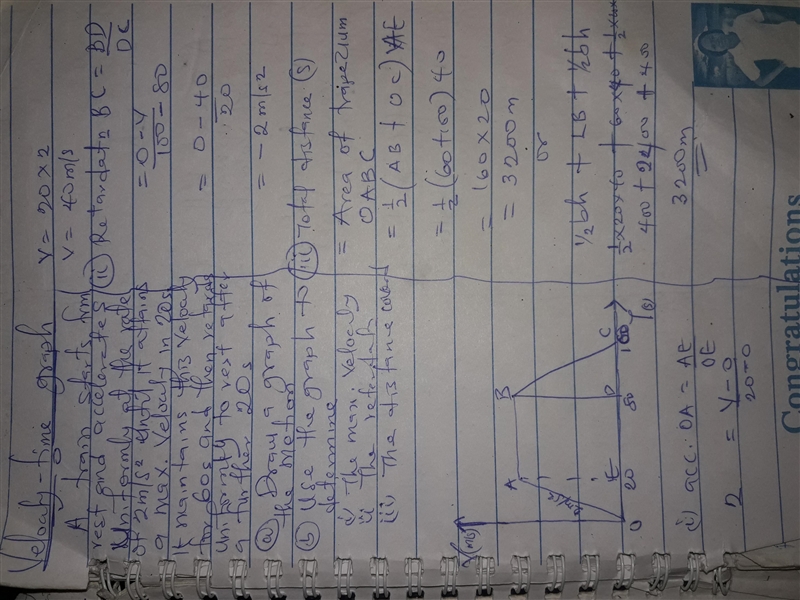 Velocity-time graph
A train starts from
rest and accelerates
Uniformly at the rate
of 2m/s² until it attains
a max. velocity in 20s
It maintains this velocity
for 60s and then retards
uniformly to rest after
a further 20s
(a) Draw a graph of
the motion
(b) Use the graph to
determine
i) The max. velocity
ii The retardatn
iii) The distance covered
V(m/s)
A
B
2m/s²
E
D
C
0
20
80
100
t(s)
(i) acc. OA = AE
OE
2 = V-0
20-0
V = 20 x 2
V = 40m/s
(ii) Retardatn BC = BD
DC
= 0-V
100-80
= 0-40
20
= -2m/s2
(iii) Total distance (s)
= Area of trapezium
OABC
= ½ (AB + OC) AE
= ½ (60+100) 40
= 160 x 20
= 3200m
or
½bh + LB + ½bh
½x20x40 + 60x40 + ½x20x
400 + 2400 + 400
3200m
Congratulations